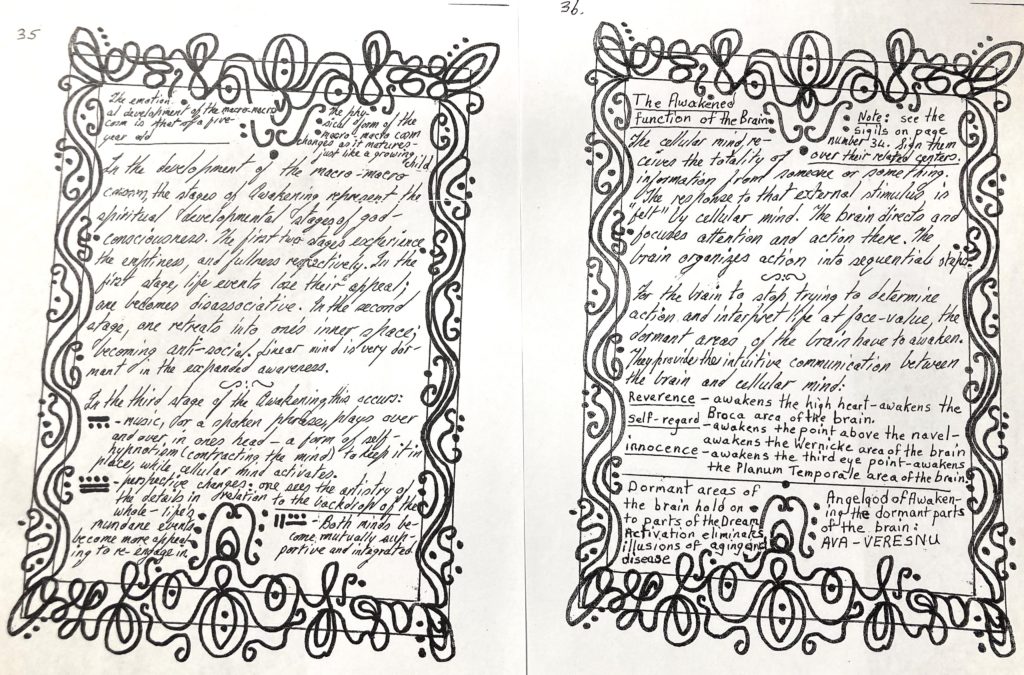 35
The emotion-
al development of the macro-macro
cosm is that of a five-
year old
The phy-
sical form of the
macro-macrocosm
changes as it matures -
just like a growing
child.
In the development of the macro-macro
cosm, the stages of Awakening represent the
spiritual developmental stages of god-
consciousness. The first two stages experience
the emptiness, and fullness respectively. In the
first stage, life events lose their appeal;
one becomes disassociative. In the second
stage, one retreats into ones inner space;
becoming anti-social. Linear mind is very dor-
mant in the expanded awareness.
In the third stage of the Awakening, this occurs:
- music, or a spoken phrases, plays over
and over, in ones head – a form of self-
hypnotism (contracting the mind) to keep it in
place, while cellular mind activates.
- perspective changes: one sees the artistry of
the details in relation to the backdrop of the
whole – life's
mundane events
become more appeal
ing to re-engage in.
- Both minds be-
come mutually sup-
portive and integrated
36.
The Awakened
function of the Brain
Note: see the
sigils on page
number 34. Sign them
over their related centers.
The cellular mind, re-
ceives the totality of
information from someone or something.
The response to that external stimulus, is
"felt" by cellular mind. The brain directs and
focuses attention and action there. The
brain organizes action into sequential steps.
For the brain to stop trying to determine
action and interpret life at face-value, the
dormant areas of the brain have to awaken.
They provide the intuitive communication between
the brain and cellular mind:
Reverence – awakens the high heart – awakens the
Broca area of the brain.
self-regard – awakens the point above the navel –
awakens the Wernicke area of the brain
innocence – awakens the third eye point – awakens
the Planum Temporale area of the brain.
Dormant areas of
the brain hold on
to parts of the Dream
Activation eliminates
illusions of aging and
disease
Angelgod of Awaken-
ing the dormant parts
of the brain:
AVA – VERESNU